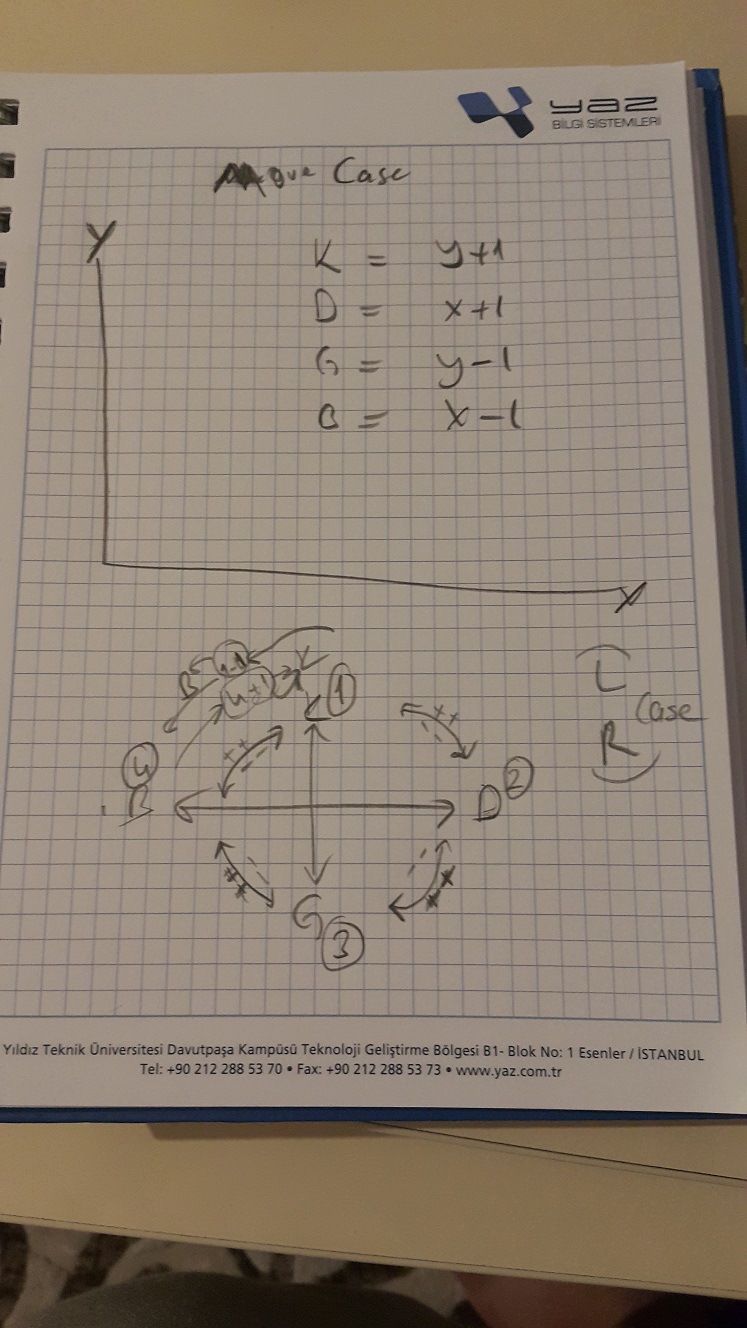 yaz
BİLGİ SİSTEMLERİ
Case
Y
K = y+1
D = x+1
G = y-1
B = x-1
X
L
Case
R
K 1
4
B
D 2
G 3
Yıldız Teknik Üniversitesi Davutpaşa Kampüsü Teknoloji Geliştirme Bölgesi B1- Blok No: 1 Esenler / İSTANBUL
Tel: +90 212 288 53 70 • Fax: +90 212 288 53 73 • www.yaz.com.tr